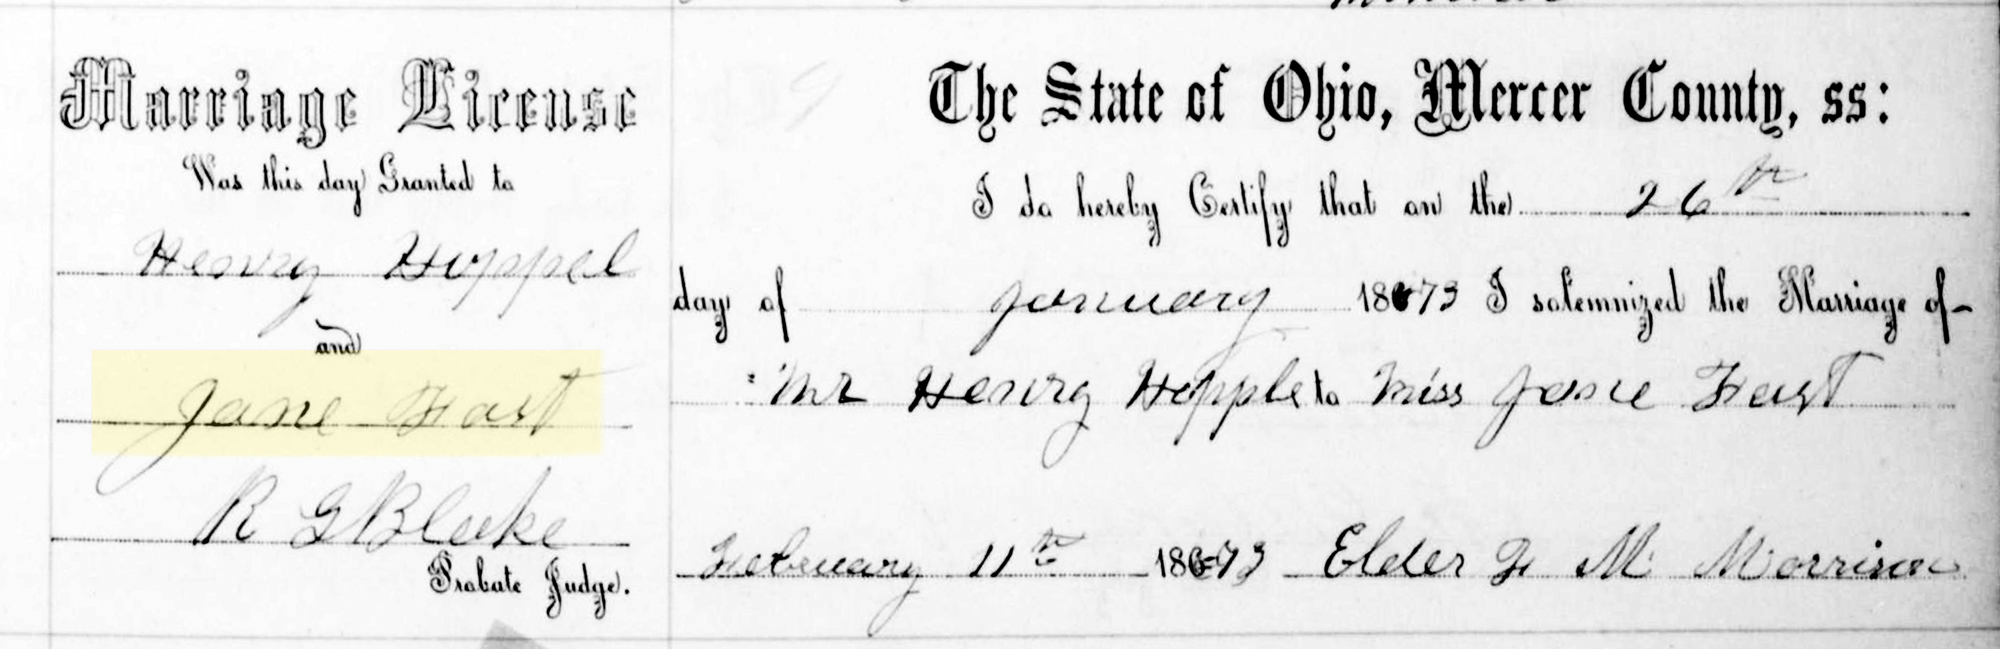 Marriage License
Was this day Granted to
Henry Hoppel
and
Jane Fast
R G Blake
Probate Judge.
The State of Ohio, Mercer County, ss:
I do hereby Certify that on the 26th
day of January 1873 I solemnized the Marriage of
Mr Henry Hopple to Miss Jane Fast
February 11th 1873 Elder F M Morrison